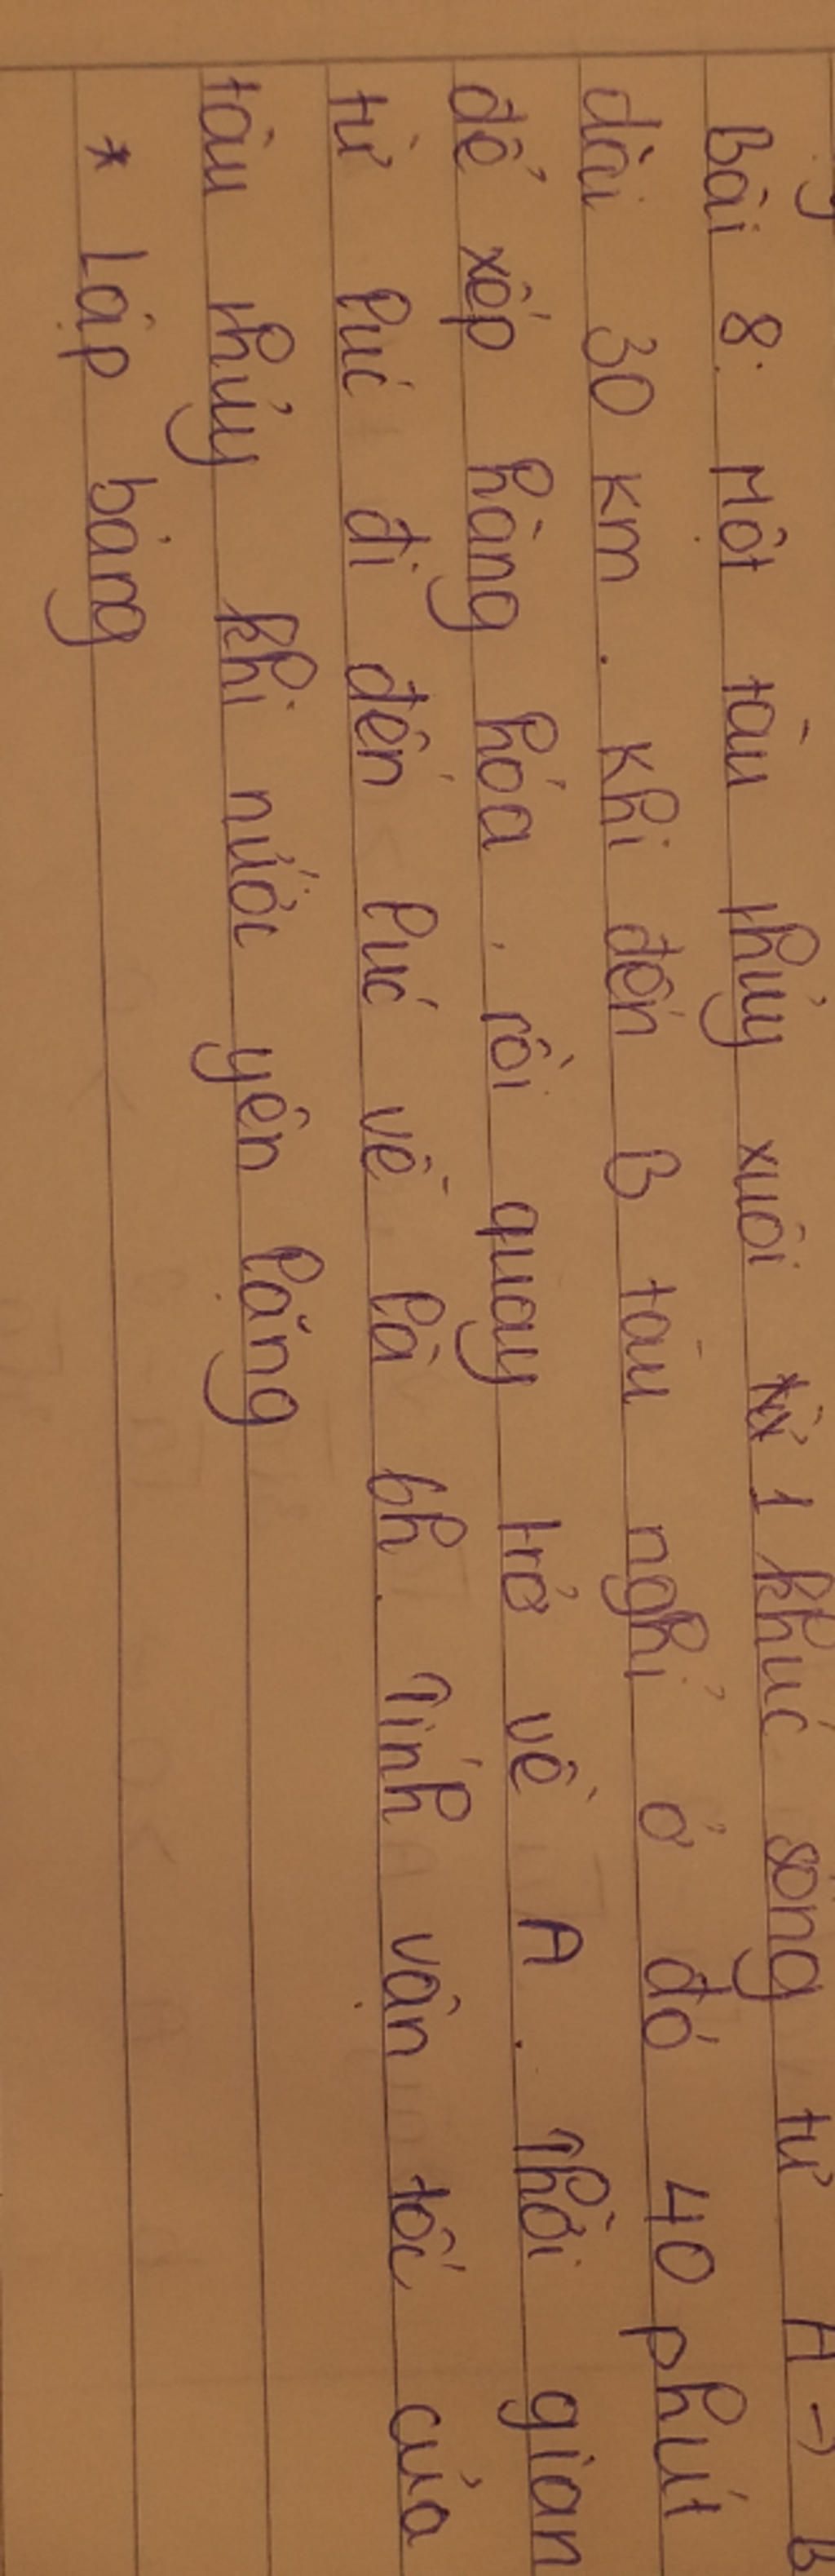 Bài 8: Một tàu thủy xuôi 1 khúc sông từ A → B
dài 30 km. Khi đến B tàu nghỉ ở đó 40 phút
để xếp hàng hóa, rồi quay trở về A. Thời gian
từ lúc đi đến lúc về là 6h. Tính vận tốc của
tàu thủy khi nước yên lặng
* Lập bảng